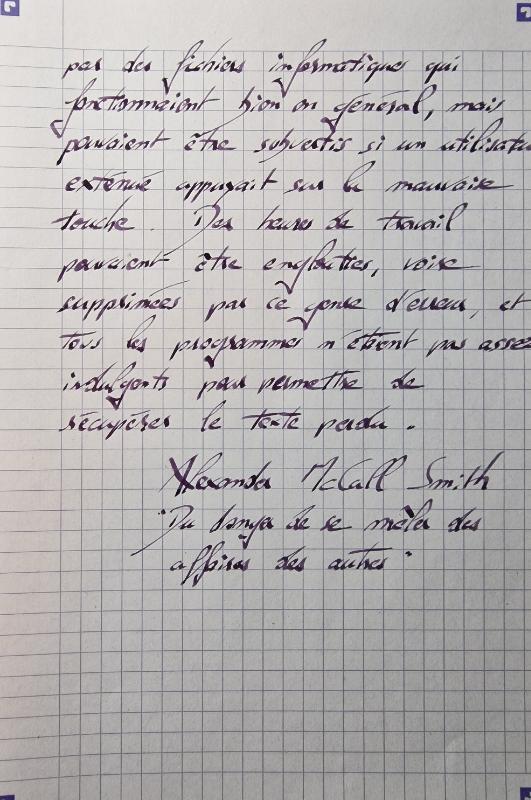 par des fichiers informatiques qui
fonctionnaient bien en général, mais
pouvaient être subvertis si un utilisateu
exténué appuyait sur la mauvaise
touche. Des heures de travail
pouvaient être englouties, voire
supprimées par ce genre d'erreur, et
tous les programmes n'étaient pas assez
indulgents pour permettre de
récupérer le texte perdu.
Alexander McCall Smith
"Du danger de se mêler des
affaires des autres"